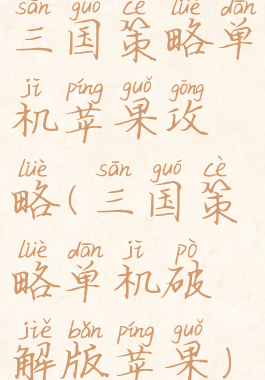 sān guó cè lüè dān
三国策略单
jī píng guǒ gōng
机苹果攻
lüè sān guó cè
略(三国策
lüè dān jī pò
略单机破
jiě bǎn píng guǒ
解版苹果)